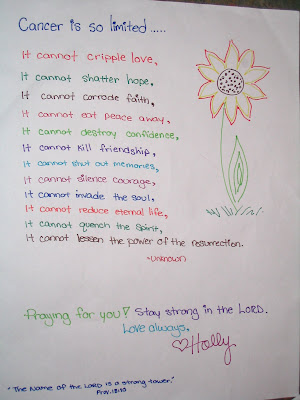 Cancer is so limited.....
It cannot cripple love,
It cannot shatter hope,
It cannot corrode faith,
It cannot eat peace away,
It cannot destroy confidence,
It cannot kill friendship,
It cannot shut out memories,
It cannot silence courage,
It cannot invade the soul,
It cannot reduce eternal life,
It cannot quench the Spirit,
It cannot lessen the power of the resurrection.
-unknown
Praying for you! Stay strong in the LORD.
Love always,
Holly
"The Name of the LORD is a strong tower."
Prov. 18:10